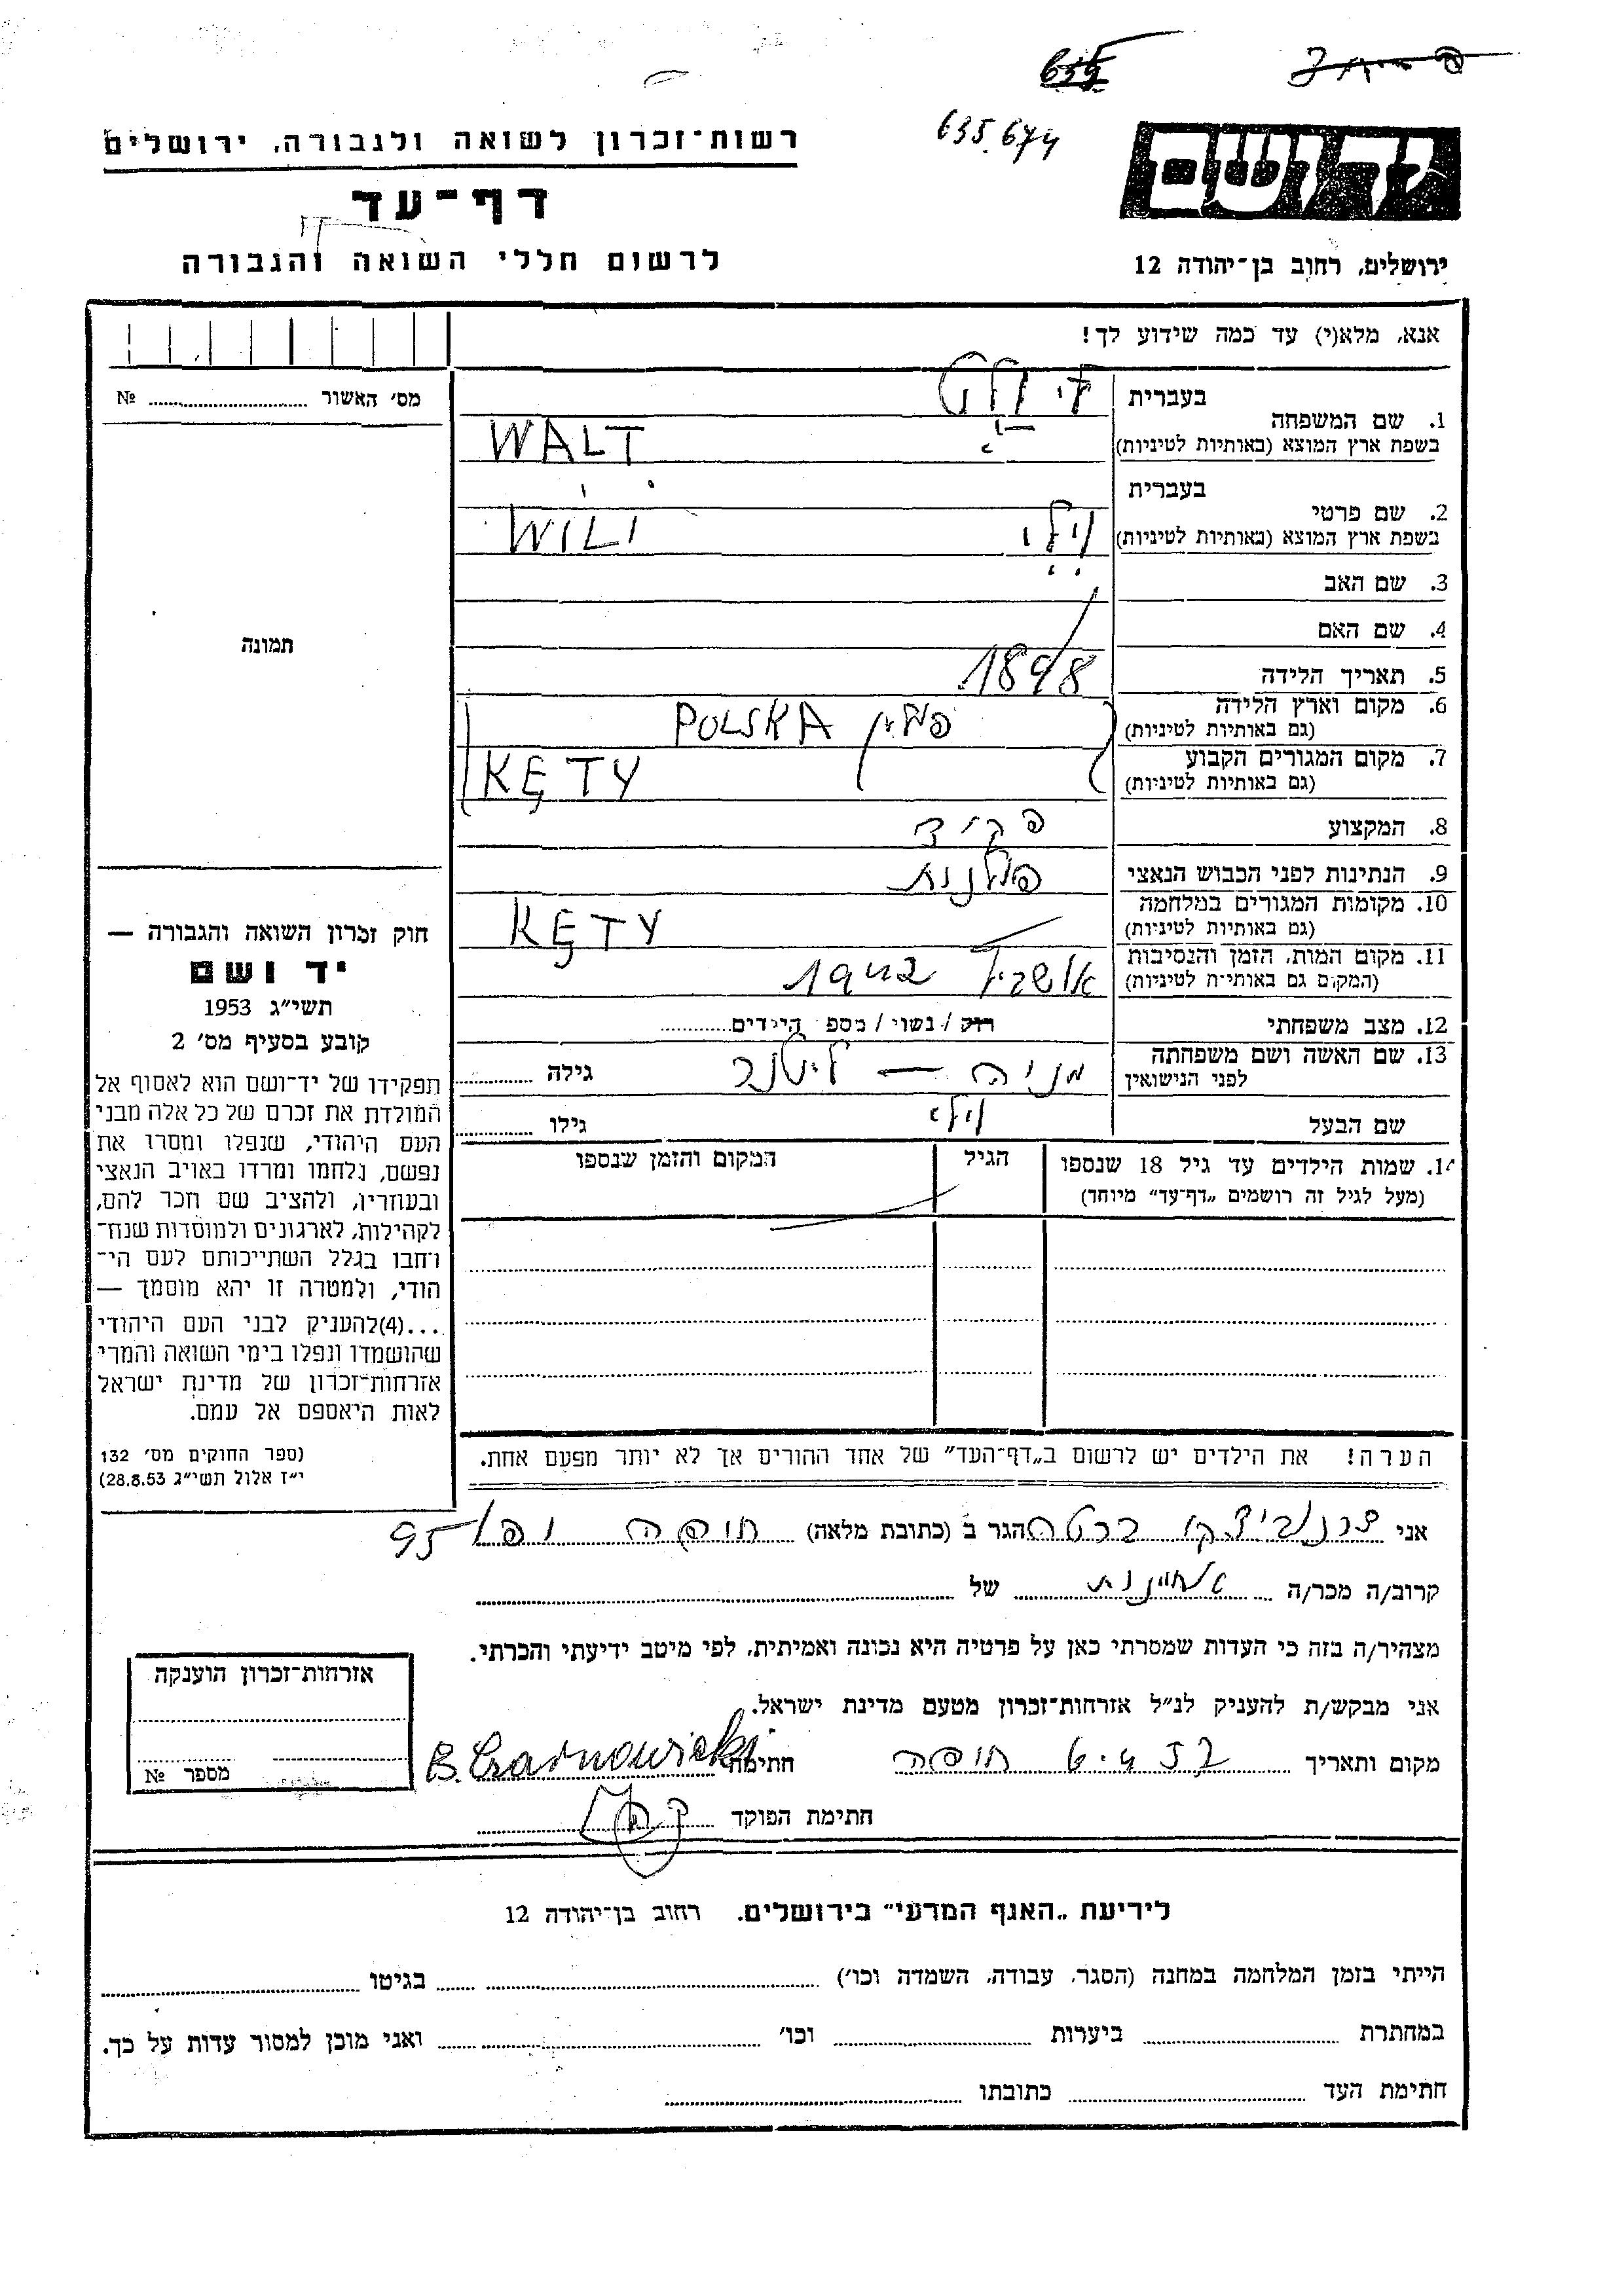 635
635.674
יד ושם
רשות־זכרון לשואה ולגבורה, ירושלים
דף־עד
ירושלים, רחוב בן־יהודה 12
לרשום חללי השואה והגבורה
אנא, מלא(י) עד כמה שידוע לך!
מס׳ האשור № ........
1. שם המשפחה
בעברית
בשפת ארץ המוצא (באותיות לטיניות) WALT
2. שם פרטי
בעברית
בשפת ארץ המוצא (באותיות לטיניות) וילי WILI
3. שם האב
4. שם האם
תמונה
5. תאריך הלידה 1898
6. מקום וארץ הלידה
(גם באותיות לטיניות) פולין POLSKA
7. מקום המגורים הקבוע
(גם באותיות לטיניות) KĘTY
8. המקצוע פקיד
9. הנתינות לפני הכבוש הנאצי פולנית
10. מקומות המגורים במלחמה
(גם באותיות לטיניות) KĘTY
11. מקום המות, הזמן והנסיבות
(המקום גם באותיות לטיניות) אושביץ 1942
12. מצב משפחתי רוק / נשוי / מספר הילדים........
13. שם האשה ושם משפחתה
לפני הנישואין מניה — גילה ........
שם הבעל וילי גילו ........
14. שמות הילדים עד גיל 18 שנספו
(מעל לגיל זה רושמים „דף־עד” מיוחד)
הגיל
המקום והזמן שנספו
חוק זכרון השואה והגבורה —
יד ושם
תשי״ג 1953
קובע בסעיף מס׳ 2
תפקידו של יד־ושם הוא לאסוף אל
המולדת את זכרם של כל אלה מבני
העם היהודי, שנפלו ומסרו את
נפשם, נלחמו ומרדו באויב הנאצי
ובעוזריו, ולהציב שם וזכר להם,
לקהילות, לארגונים ולמוסדות שנח־
רחבו בגלל השתייכותם לעם הי־
הודי, ולמטרה זו יהא מוסמך —
...(4)להעניק לבני העם היהודי
שהושמדו ונפלו בימי השואה והמרי
אזרחות־זכרון של מדינת ישראל
לאות היאספם אל עמם.
(ספר החוקים מס׳ 132
י״ז אלול תשי״ג 28.8.53)
הערה! את הילדים יש לרשום ב„דף־העד” של אחד ההורים אך לא יותר מפעם אחת.
אני צרנוביצקי ברטה הגר ב (כתובת מלאה) חיפה 95
קרוב/ה מכר/ה ........ של ........
מצהיר/ה בזה כי העדות שמסרתי כאן על פרטיה היא נכונה ואמיתית, לפי מיטב ידיעתי והכרתי.
אני מבקש/ת להעניק לנ״ל אזרחות־זכרון מטעם מדינת ישראל.
מקום ותאריך חיפה 6.4.57 חתימה B. Czarnowicki
חתימת הפוקד ........
אזרחות־זכרון הוענקה
מספר №
לידיעת „האגף המדעי” בירושלים. רחוב בן־יהודה 12
הייתי בזמן המלחמה במחנה (הסגר, עבודה, השמדה וכו׳) ........ בגיטו ........
במחתרת ........ ביערות ........ וכו׳ ........ ואני מוכן למסור עדות על כך.
חתימת העד ........ כתובתו ........